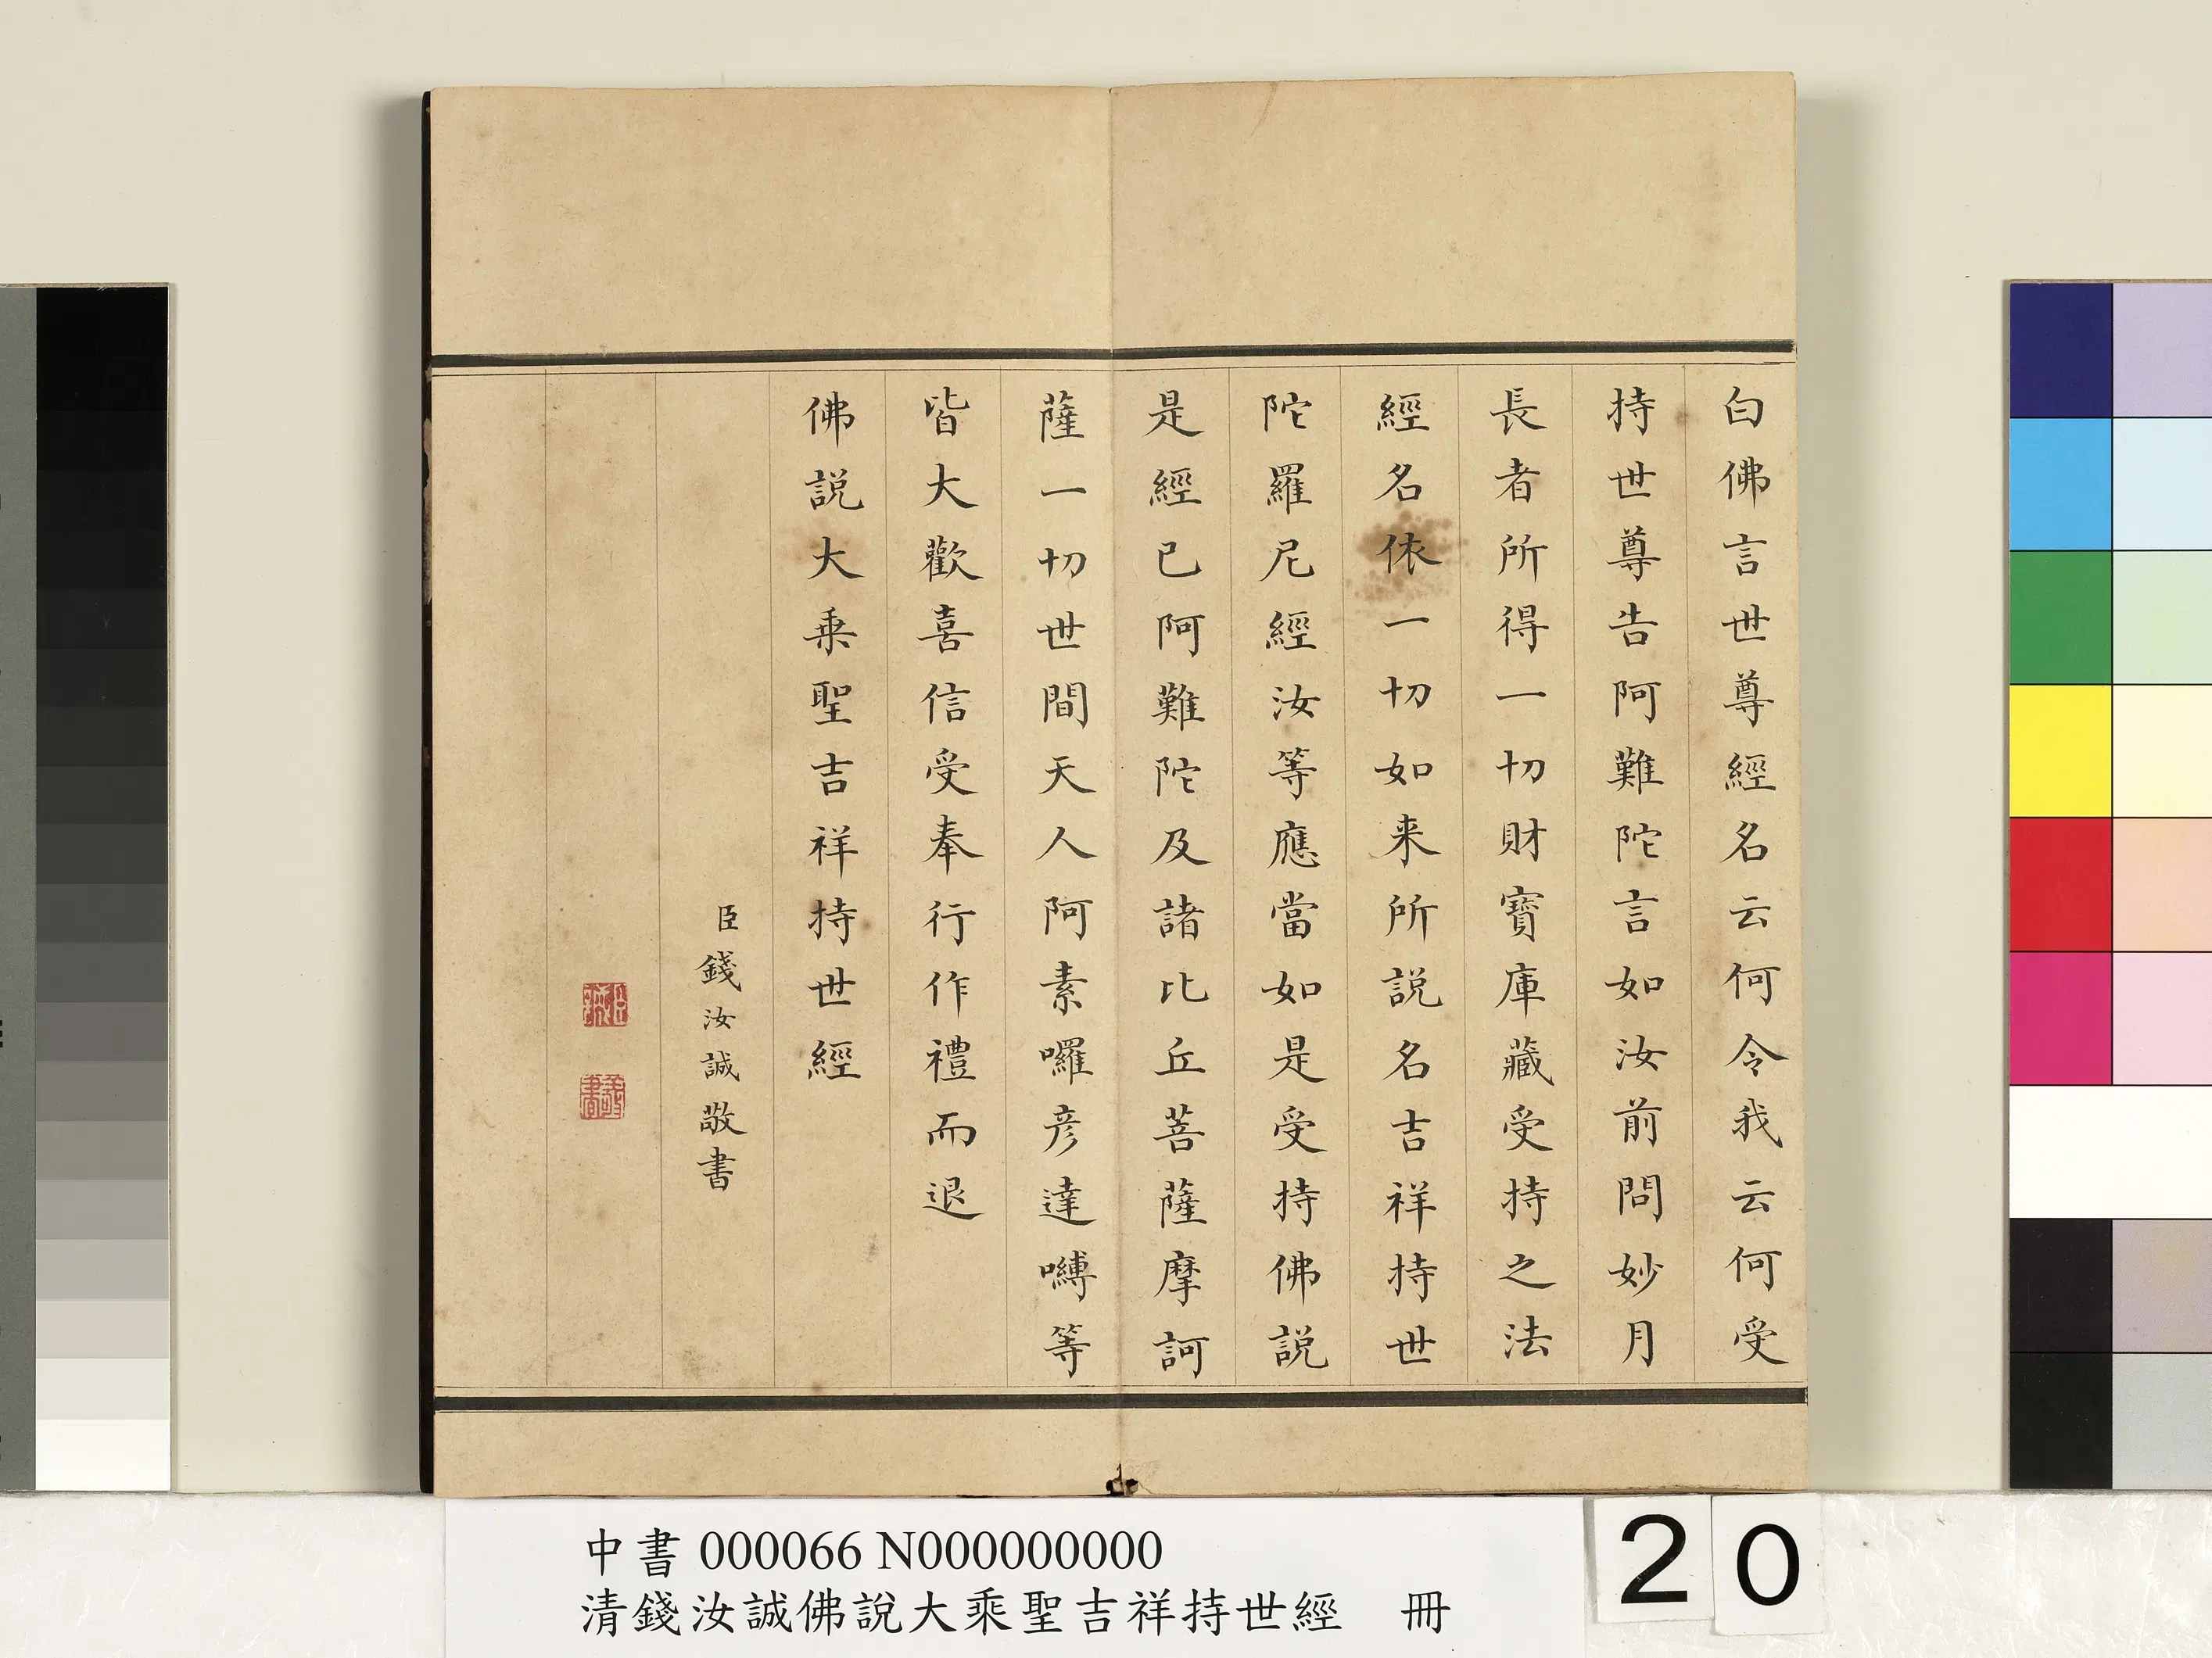 白佛言世尊經名云何令我云何受
持世尊告阿難陀言如汝前問妙月
長者所得一切財寶庫藏受持之法
經名依一切如来所說名吉祥持世
陀羅尼經汝等應當如是受持佛說
是經已阿難陀及諸比丘菩薩摩訶
薩一切世間天人阿素囉彦達嚩等
皆大歡喜信受奉行作禮而退
佛說大乗聖吉祥持世經
臣錢汝誠敬書
中書 000066 N000000000
清錢汝誠佛說大乘聖吉祥持世經 冊
20